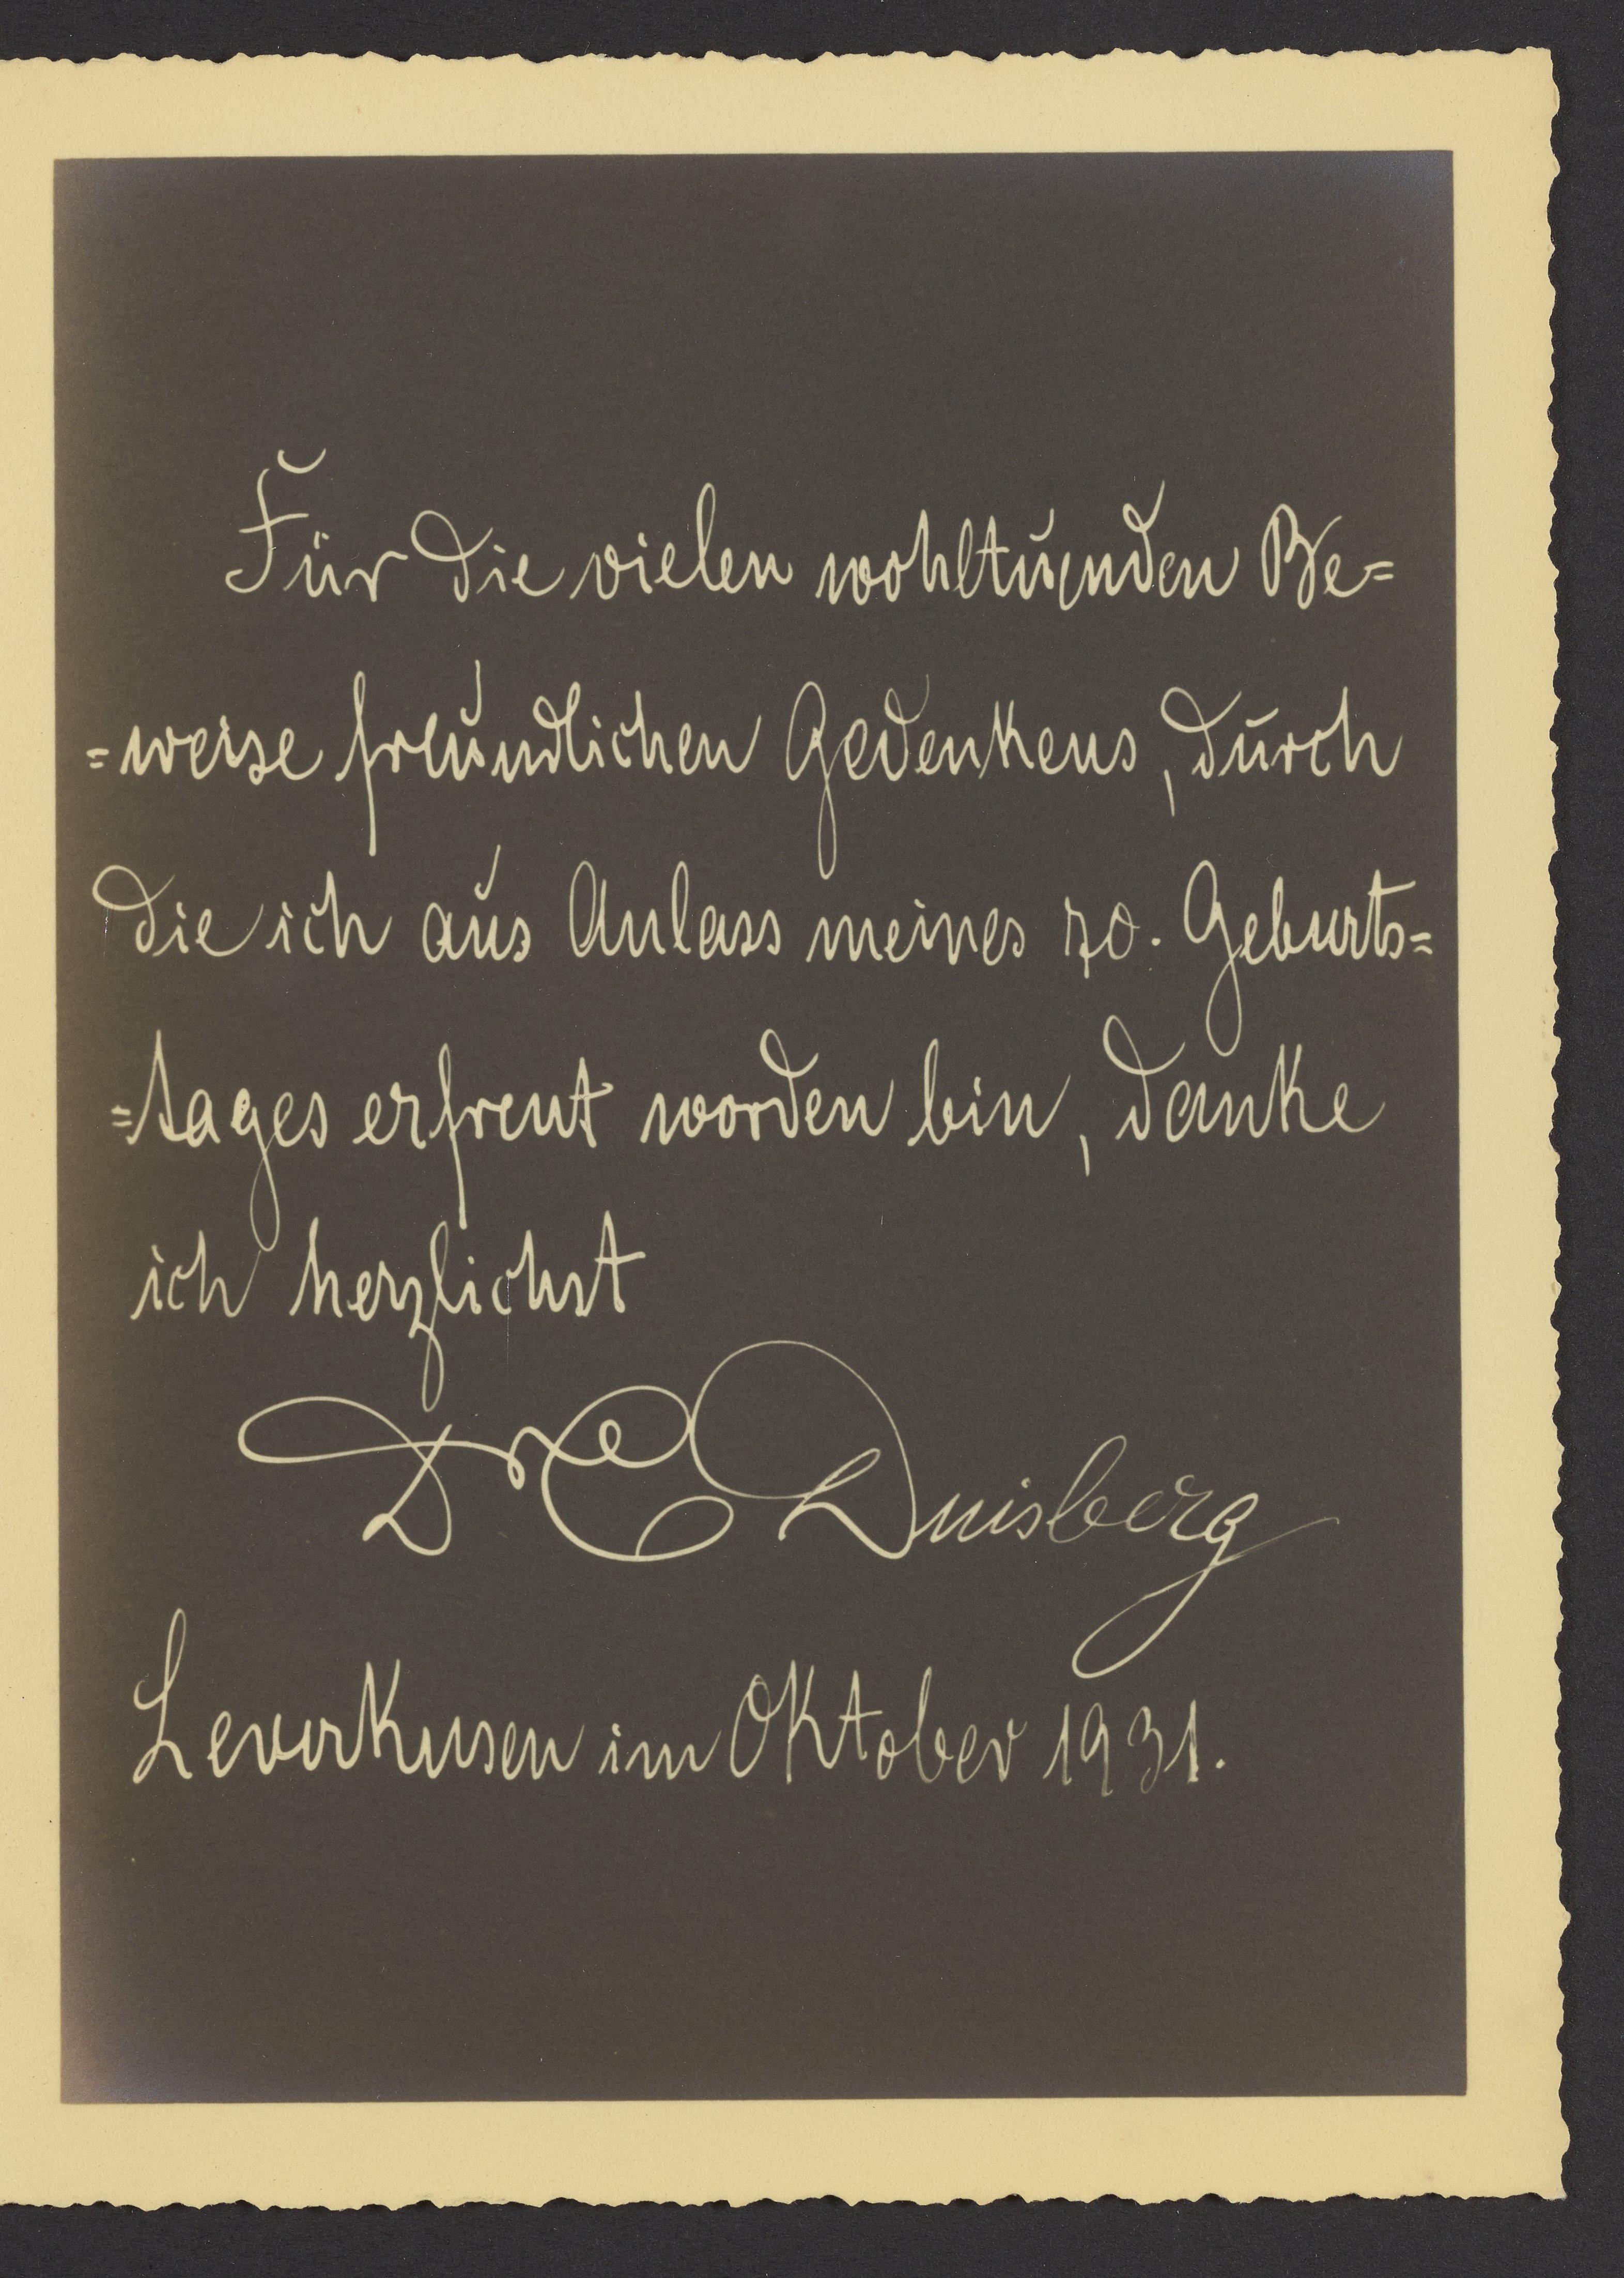 Für die vielen wohltuenden Be=
=weise freundlichen Gedenkens, durch
die ich aus Anlass meines 70. Geburts=
=tages erfreut worden bin, danke
ich herzlichst
Dr C Duisberg
Leverkusen im Oktober 1931.